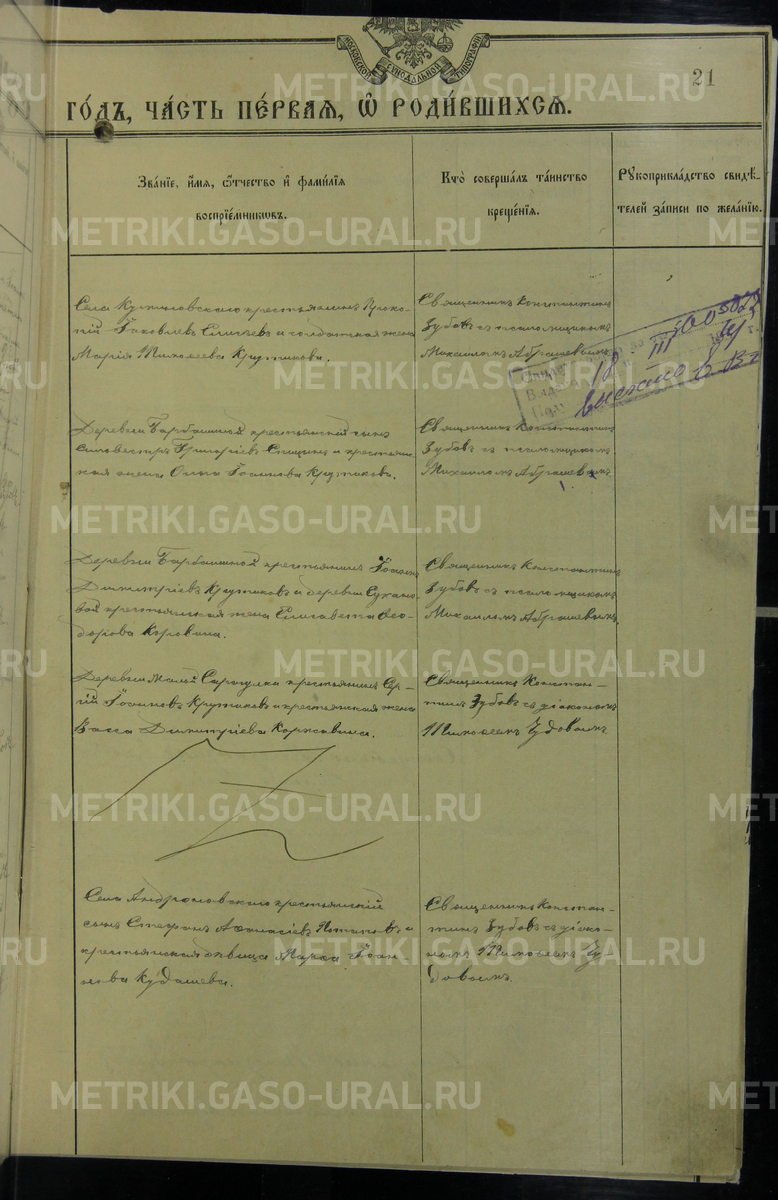 МОСКОВСКОЙ СУНОДАЛЬНОЙ ТИПОГРАФІИ
21
ГО́ДЪ, ЧА́СТЬ ПЕ́РВАѦ, Ѡ҆ РОДИ́ВШИХСѦ.
Зва́нїе, и҆́мѧ, ѻ҆́тчество и҆ фами́лїѧ
воспрїе́мниковъ.
Кто̀ соверша́лъ та́инство
креще́нїѧ.
Рꙋкоприкла́дство свидѣ́-
телей за́писи по жела́нїю.
крестьянинъ Проко-
пій Іаковлевъ и солдатская жена
Марія Николаева Крутикова.
Священникъ Константинъ
Зубовъ съ псаломщикомъ
Михаиломъ Абрашевымъ
18 III
выслано в
Деревни крестьянскій сынъ
Силовестръ Григоріевъ Спицинъ и крестьян-
ская жена Ольга Іоаннова Крутикова.
Священникъ Константинъ
Зубовъ съ псаломщикомъ
Михаиломъ Абрашевымъ
Деревни крестьянинъ Іоаннъ
Димитріевъ Крутиковъ и деревни Сухано-
вой крестьянская жена Елисавета Ѳео-
дорова Коровина.
Священникъ Константинъ
Зубовъ съ псаломщикомъ
Михаиломъ Абрашевымъ.
Деревни Малой крестьянинъ Сер-
гій Іоанновъ Крутиковъ и крестьянская жена
Васса Димитріева Коржавина.
Священникъ Констан-
тинъ Зубовъ съ діакономъ
Николаемъ Чудовымъ
Села Андроновскаго крестьянскій
сынъ Стефанъ Аѳанасіевъ Потаповъ и
крестьянская дѣвица Марѳа Іоан-
нова Кудашева.
Священникъ Констан-
тинъ Зубовъ съ діако-
номъ Николаемъ Чу-
довымъ.
METRIKI.GASO-URAL.RU